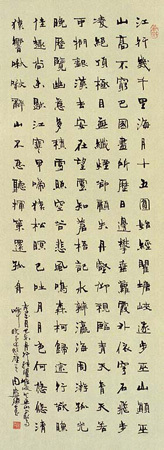 江行幾千里海月十五圓始經瞿唐峽遂步巫山巔巫
山高不窮巴國盡所歷日邊攀垂蘿霞外倚穹石飛步
凌絕頂極目無纖煙卻顧失丹壑仰觀臨青天青天若
可捫銀漢去安在望雲知蒼梧記水辨瀛海周游孤光
晚歷覽幽意多積雪照空谷悲風鳴森柯歸途行欲曛
佳趣尚未歇江寒早啼猿松暝已吐月月色何悠悠清
猿響啾啾辭山不忍聽揮策還孤舟